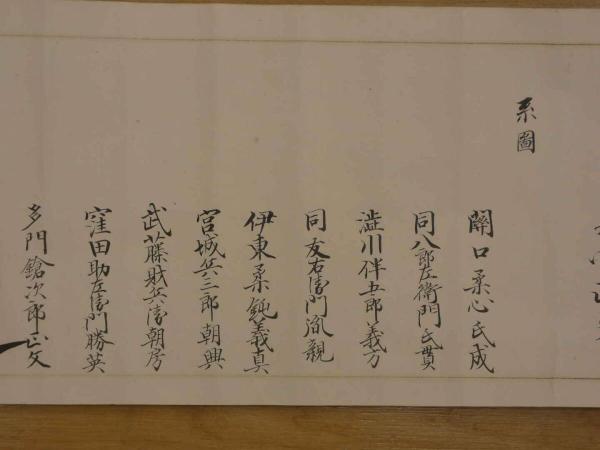 系圖
關口柔心氏成
同八郎左衛門氏貫
澁川伴五郎義方
同友右衛門親
伊東柔鈍義真
宮城兵三郎朝興
武藤財兵衛朝房
窪田助左衛門勝英
多門鎗次郎正文